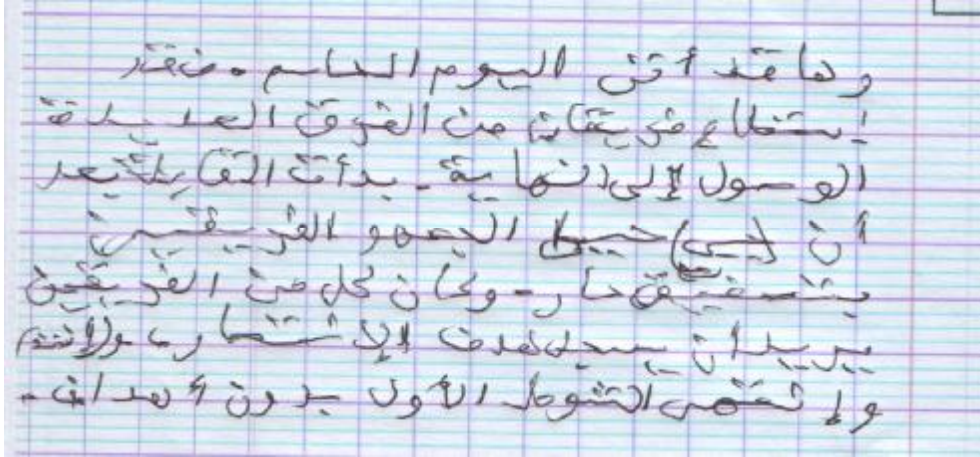 وها قد أتى اليوم الحاسم. فقد
إستطاع فريقان من الفرق العديدة
الوصول إلى النهاية. بدأت المقابلة بعد
أن حيا الجمهو الفريقين
بتصفيق حار. وكان كل من الفريقين
يريد أن يسجل هدف الإنتصار
وإنتهى الشوط الأول بدون أهداف.